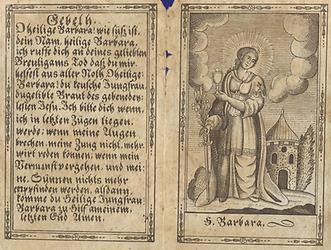 Gebeth.
O heilige Barbara: wie süß ist
dein Nam, heilige Barbara,
ich ruffe dich an deines geliebten
Breutigams Tod daß du mir
helfest aus aller Noth O heilige
Barbara! du keusche Jungfrau
du geliebte Braut des gebenedey-
testen Jesu. Ich bitte dich wenn
ich in letzten Zügen liegen
werde, wenn meine Augen
brechen, meine Zung nicht mehr
wirt reden können, wenn mein
Vernunft vergehen, und mei-
ne Sünnen nichts mehr
empfinden werden, alsdann
komme du Heilige Jungfrau
Barbara zu Hilf meinem
letzten End Amen.
S. Barbara.